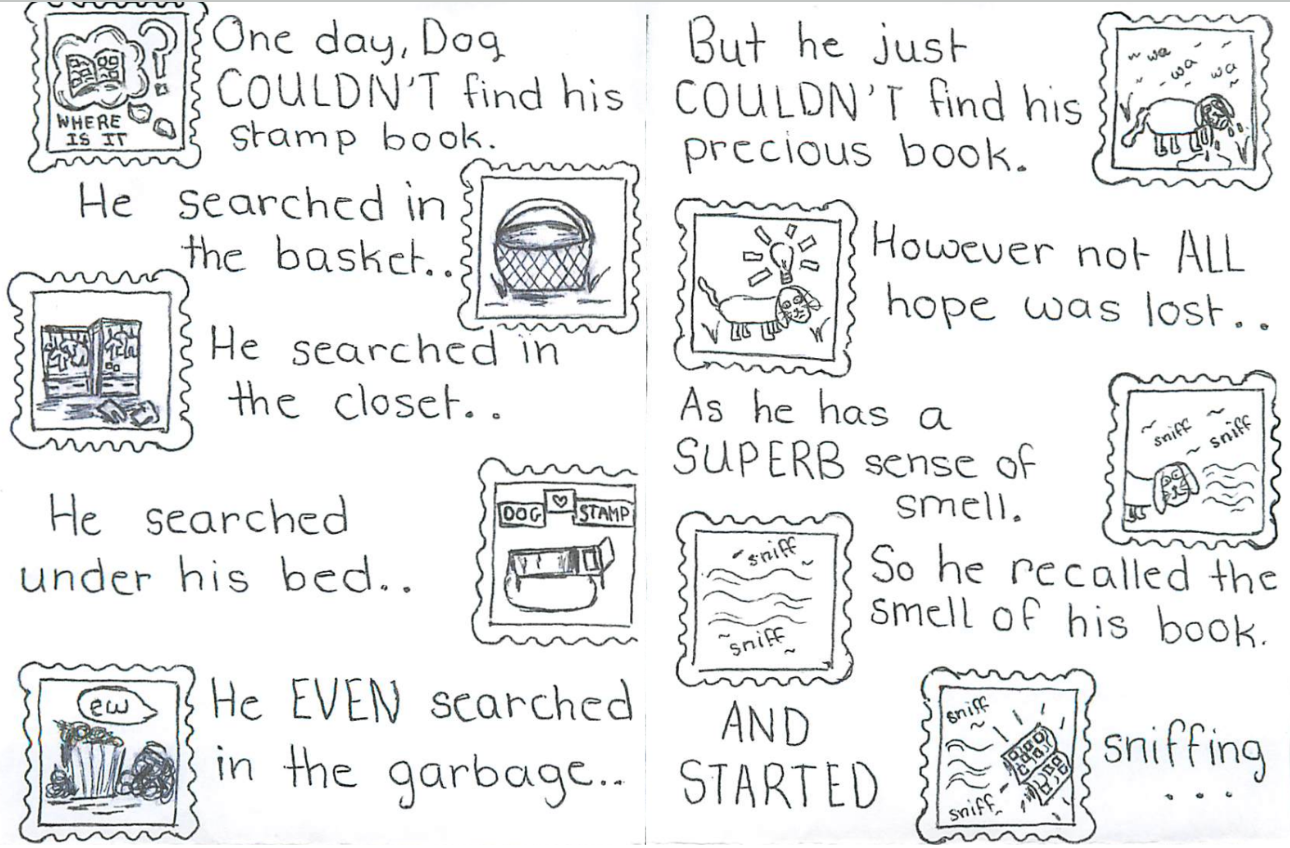 WHERE
IS IT
?!
One day, Dog
COULDN'T find his
stamp book.
He searched in
the basket..
He searched in
the closet..
He searched
under his bed..
DOG STAMP
ew
He EVEN searched
in the garbage..
But he just
COULDN'T find his
precious book.
~ wa ~
wa
wa
However not ALL
hope was lost..
As he has a
SUPERB sense of
smell.
sniff sniff
sniff
sniff
So he recalled the
smell of his book.
AND
STARTED
sniff
sniff
sniffing
...